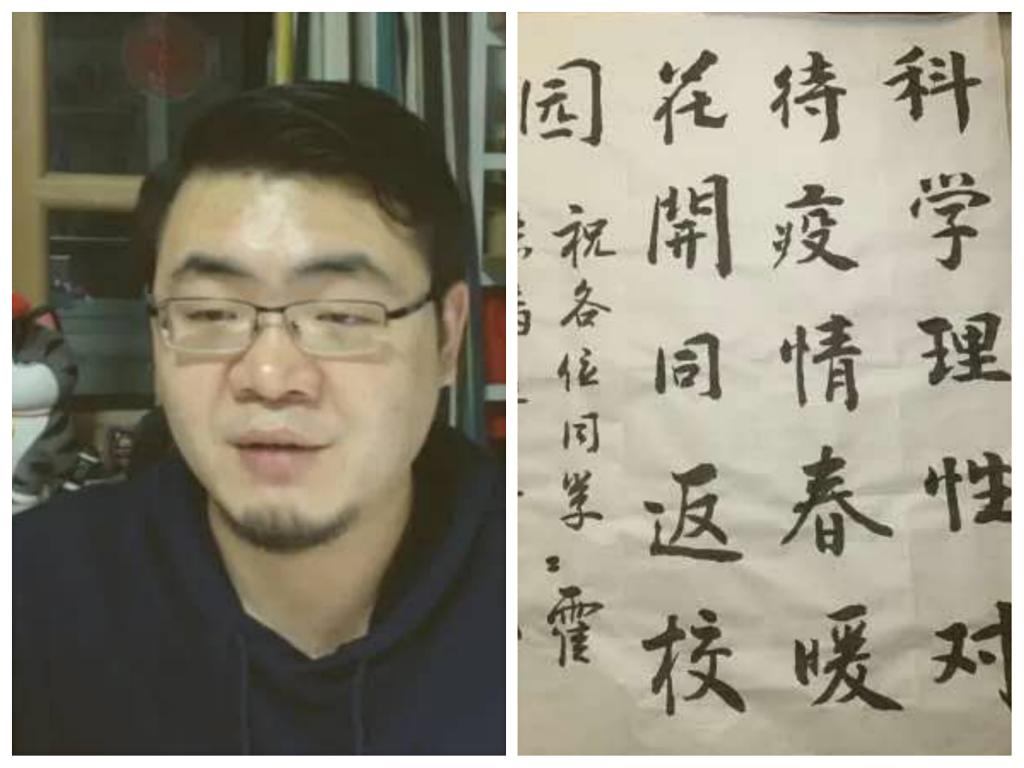 科学理性对
待疫情春暖
花開同返校
园
祝各位同学
霍